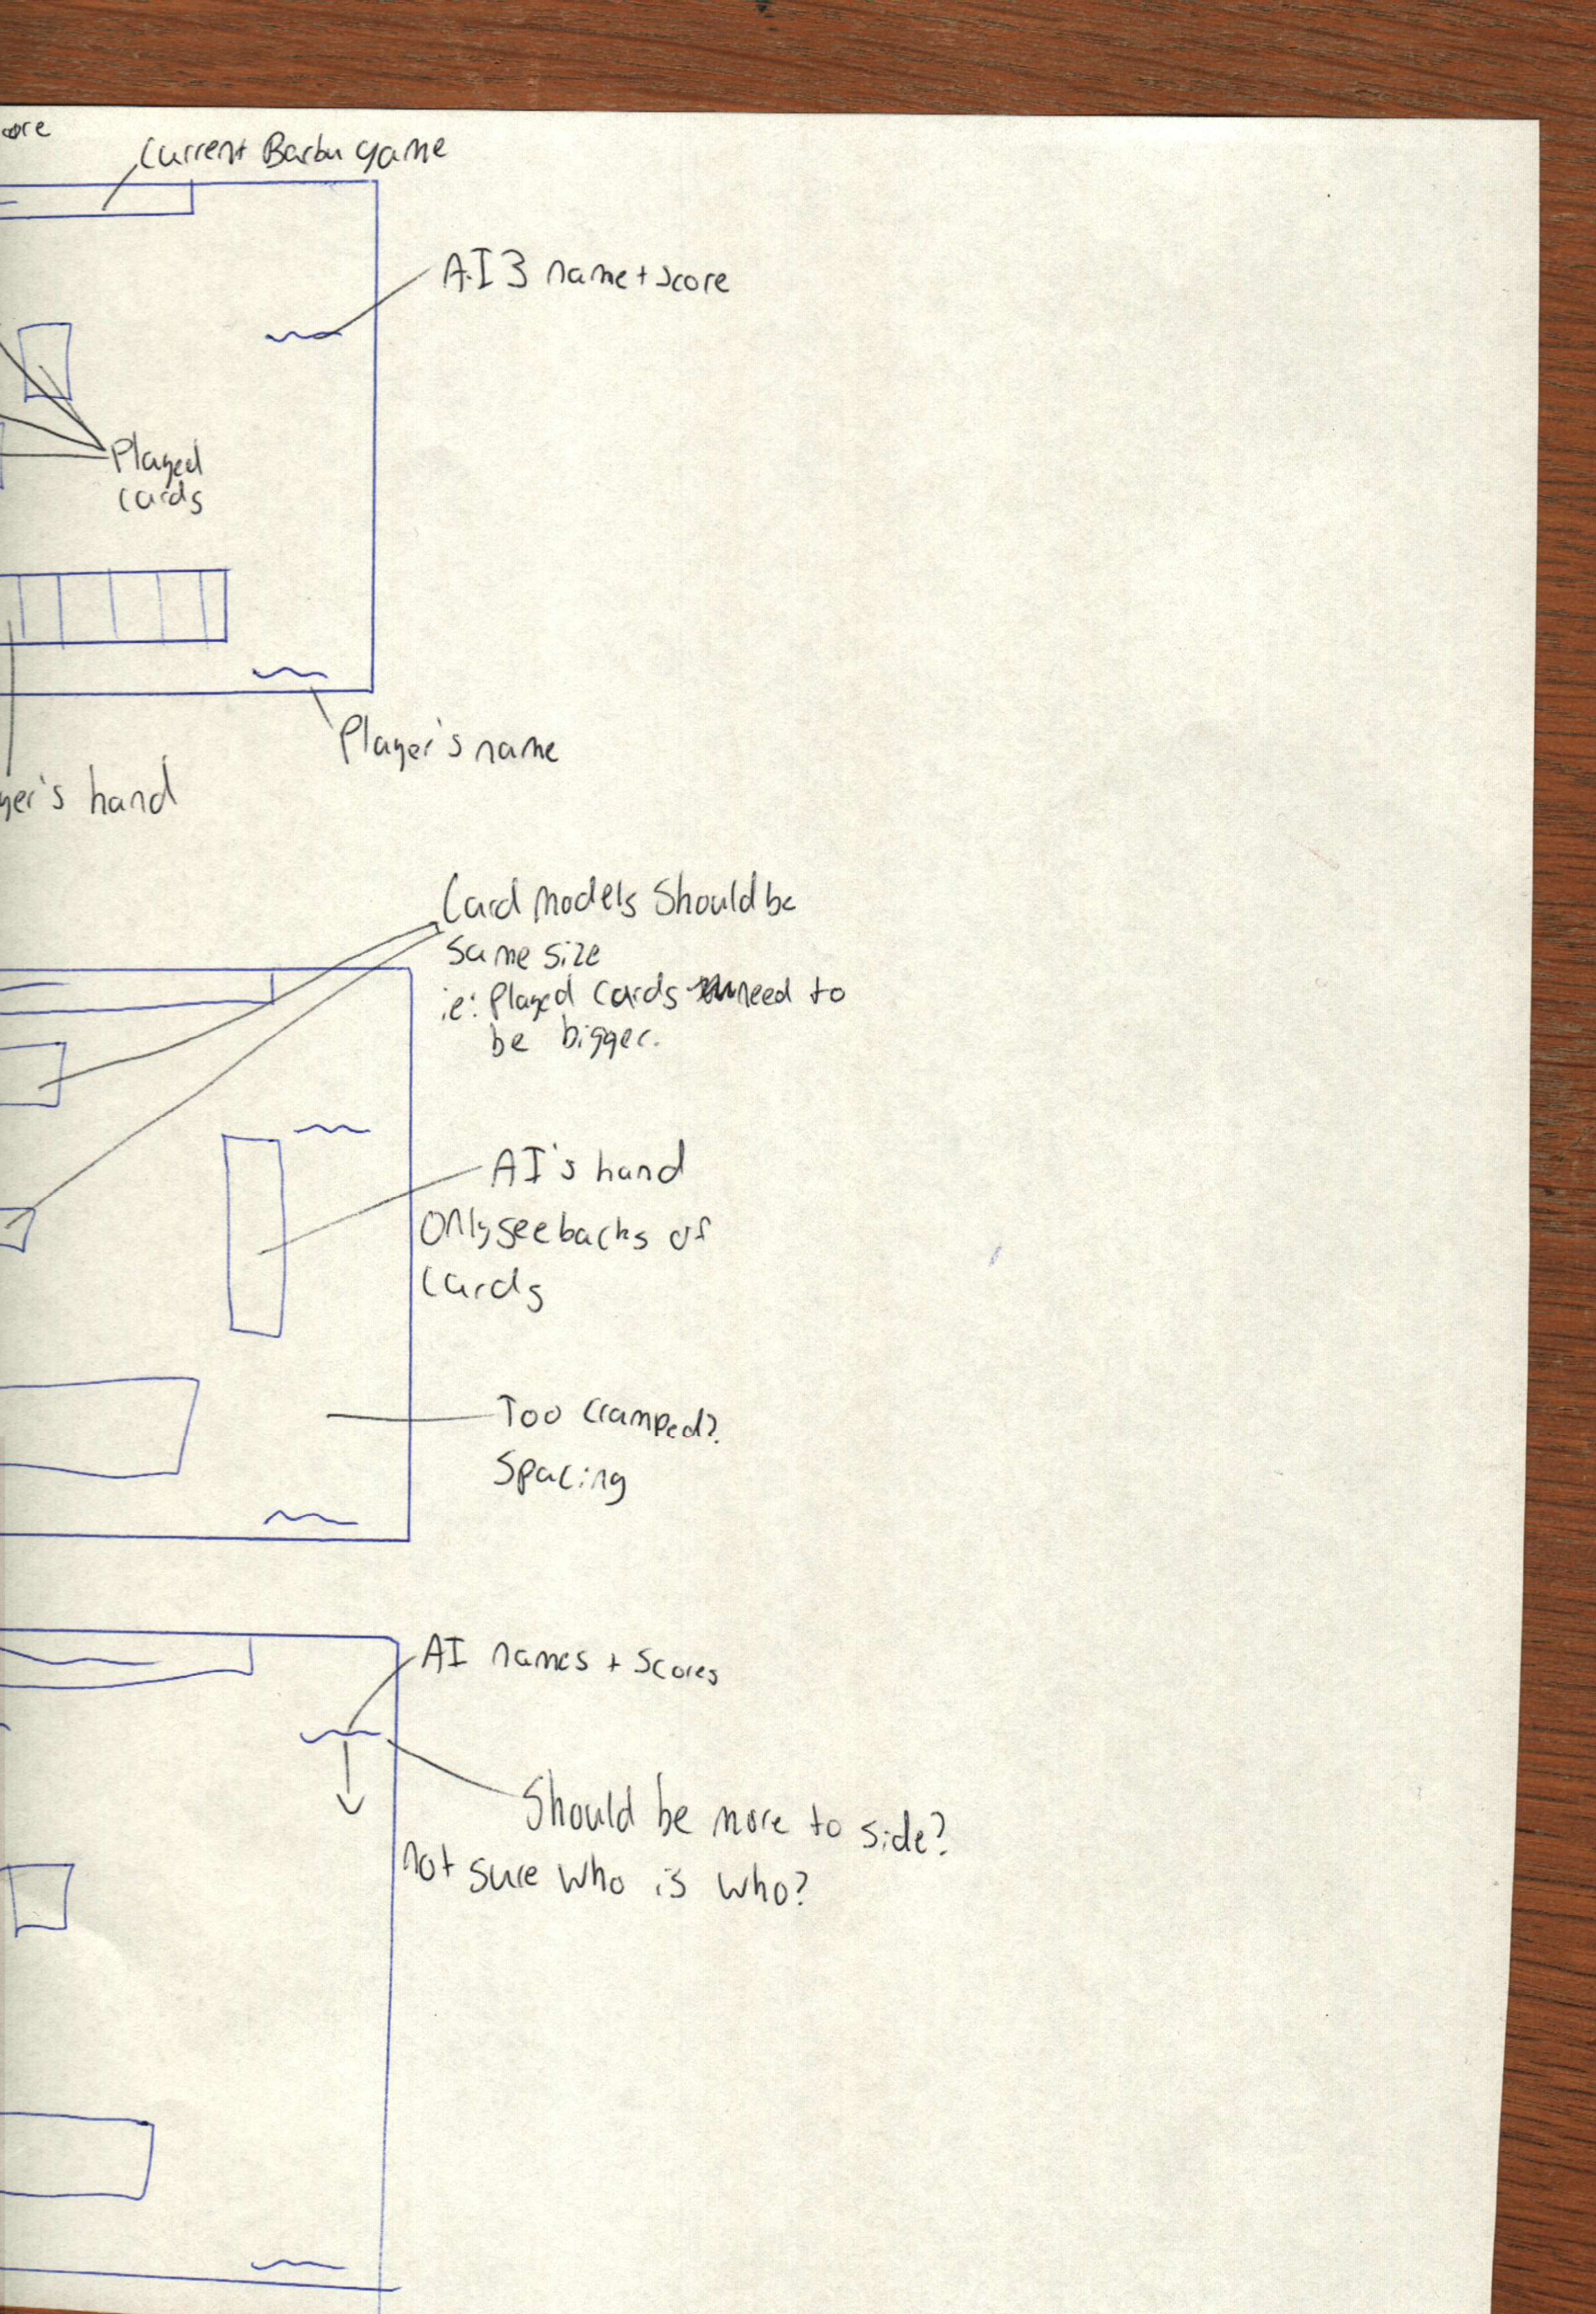 ore
Current Barbu game
A.I 3 name + score
Played
cards
Player's name
yer's hand
Card models should be
same size
ie: Played cards need to
be bigger.
AI's hand
Only see backs of
cards
Too cramped?
Spacing
AI names + scores
Should be more to side?
not sure who is who?